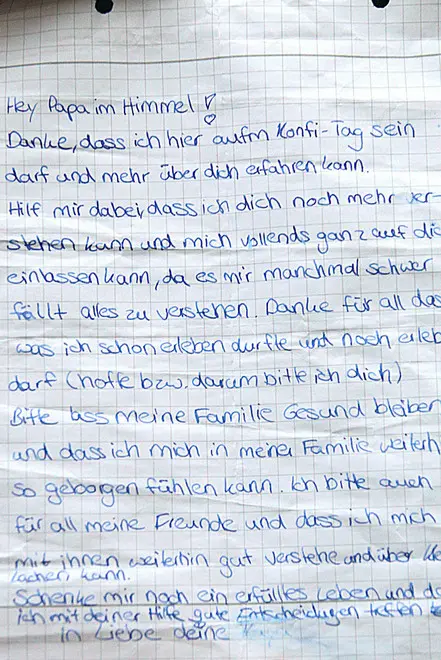 Hey Papa im Himmel!
Danke, dass ich hier aufm Konfi-Tag sein
darf und mehr über dich erfahren kann.
Hilf mir dabei, dass ich dich noch mehr ver-
stehen kann und mich vollends ganz auf dic
einlassen kann, da es mir manchmal schwer
fällt alles zu verstehen. Danke für all das
was ich schon erleben durfte und noch erleb
darf (hoffe bzw. darum bitte ich dich)
Bitte lass meine Familie Gesund bleiben
und dass ich mich in meiner Familie weiterh
so geborgen fühlen kann. Ich bitte auch
für all meine Freunde und dass ich mich
mit ihnen weiterhin gut verstehe und über
lachen kann.
Schenke mir noch ein erfülltes Leben und da
ich mit deiner Hilfe gute Entscheidugen treffen
in Liebe deine